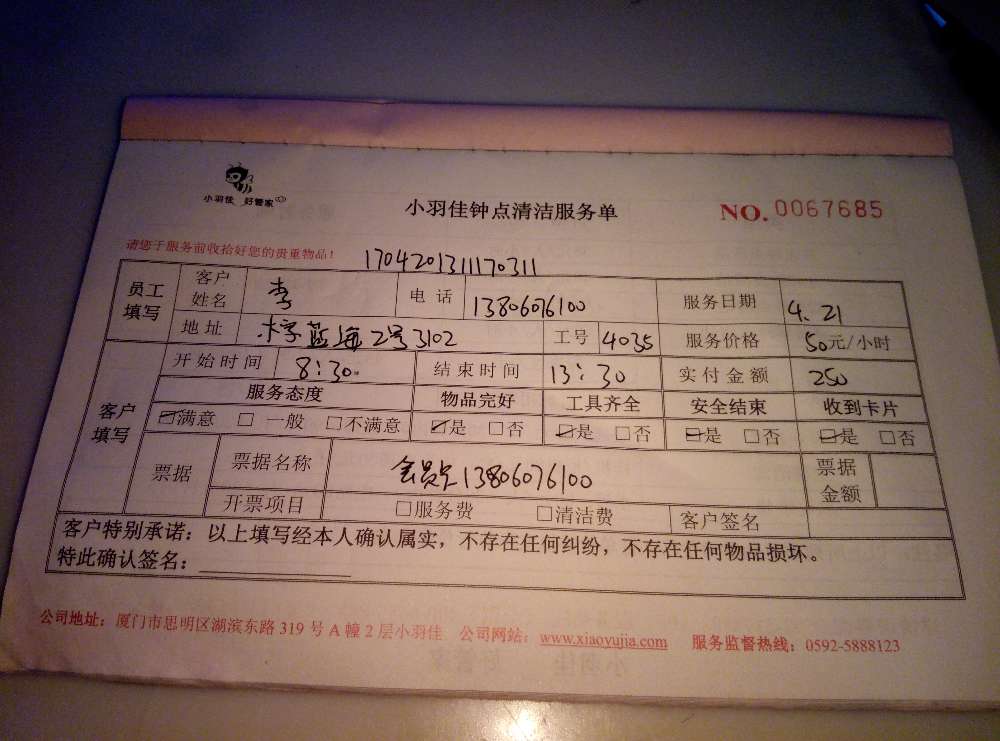 小羽佳 好管家
小羽佳钟点清洁服务单
NO. 0067685
请您于服务前收拾好您的贵重物品！
1704201311170311
员工填写 客户姓名 李 电话 13806076100 服务日期 4.21
地址 蓝海2号3102 工号 4035 服务价格 50元/小时
客户填写 开始时间 8:30 结束时间 13:30 实付金额 250
服务态度 物品完好 工具齐全 安全结束 收到卡片
☑满意 □一般 □不满意 ☑是 □否 ☑是 □否 ☑是 □否 ☑是 □否
票据 票据名称 会员 13806076100 票据金额
开票项目 □服务费 □清洁费 客户签名
客户特别承诺：以上填写经本人确认属实，不存在任何纠纷，不存在任何物品损坏。
特此确认签名：
公司地址：厦门市思明区湖滨东路 319 号 A 幢 2 层小羽佳 公司网站：www.xiaoyujia.com 服务监督热线：0592-5888123